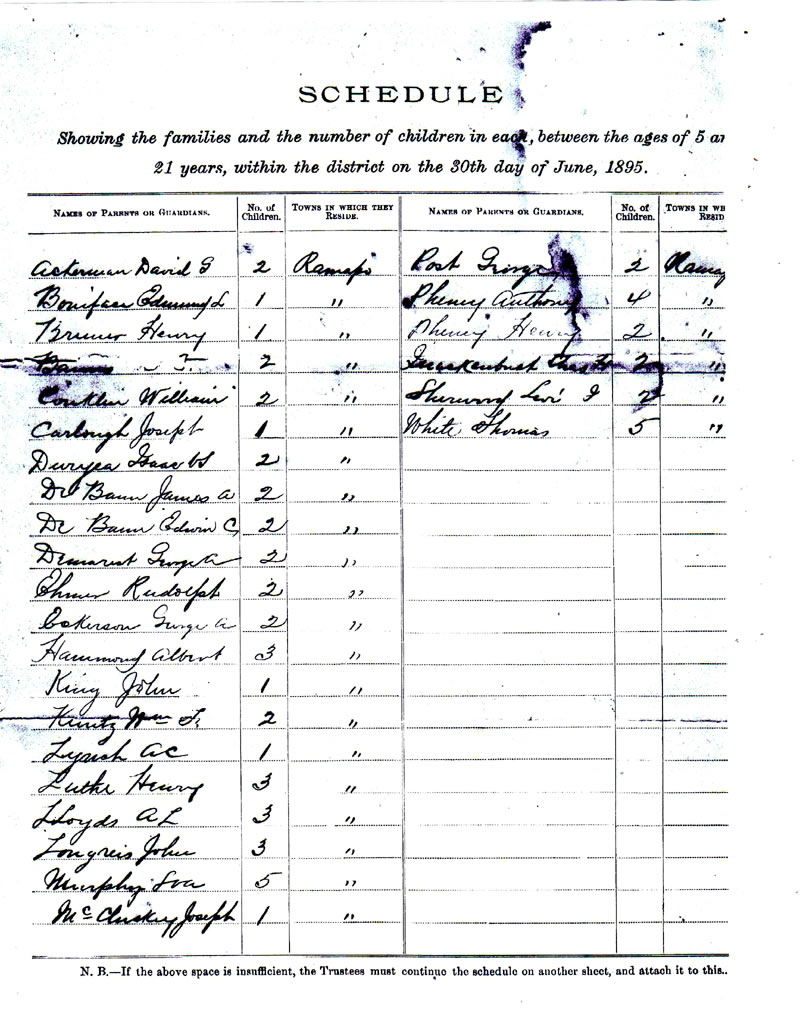 SCHEDULE
Showing the families and the number of children in each, between the ages of 5 an
21 years, within the district on the 30th day of June, 1895.
NAMES OF PARENTS OR GUARDIANS. No. of Children. TOWNS IN WHICH THEY RESIDE.
Ackerman David G 2 Ramapo
Boniface Edmund L 1 "
Bremer Henry 1 "
2 "
Conklin William 2 "
Carlough Joseph 1 "
Duryea Isaac 2 "
De Baun James A 2 "
De Baun Edwin C 2 "
Demarest George A 2 "
Rudolph 2 "
Eckerson George A 2 "
Hammond Albert 3 "
King John 1 "
Kuntz Wm 2 "
Lynch A C 1 "
Luthe Henry 3 "
Lloyds A L 3 "
Longreis John 3 "
Murphy 5 "
McCluskey Joseph 1 "
NAMES OF PARENTS OR GUARDIANS. No. of Children. TOWNS IN WH RESID
Post George 2 Ramap
Pheney Anthony 4 "
Pheney Henry 2 "
Quackenbush 2 "
Sherwood Levi 2 "
White Thomas 5 "
N. B.—If the above space is insufficient, the Trustees must continue the schedule on another sheet, and attach it to this..